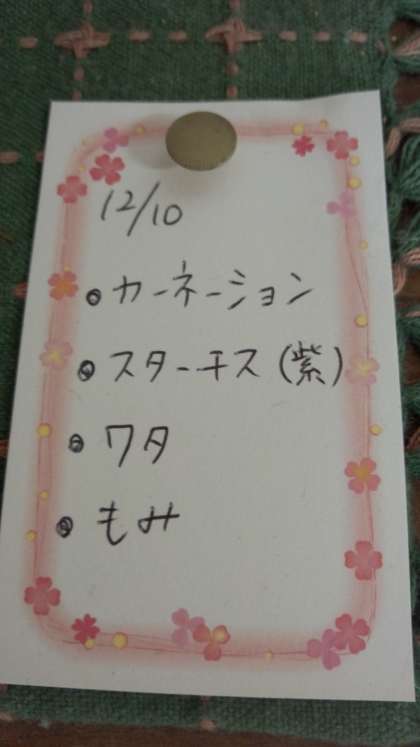 12/10
・カーネーション
・スターチス(紫)
・ワタ
・もみ